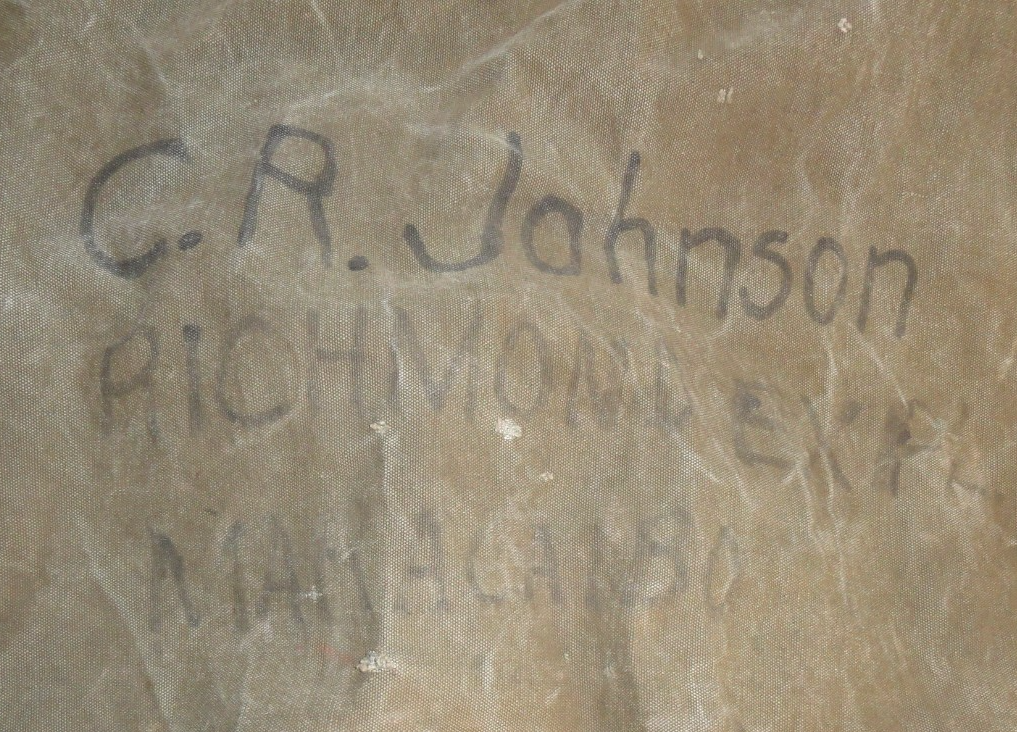 C.R. Johnson
RICHMOND EXPL
MARACAIBO